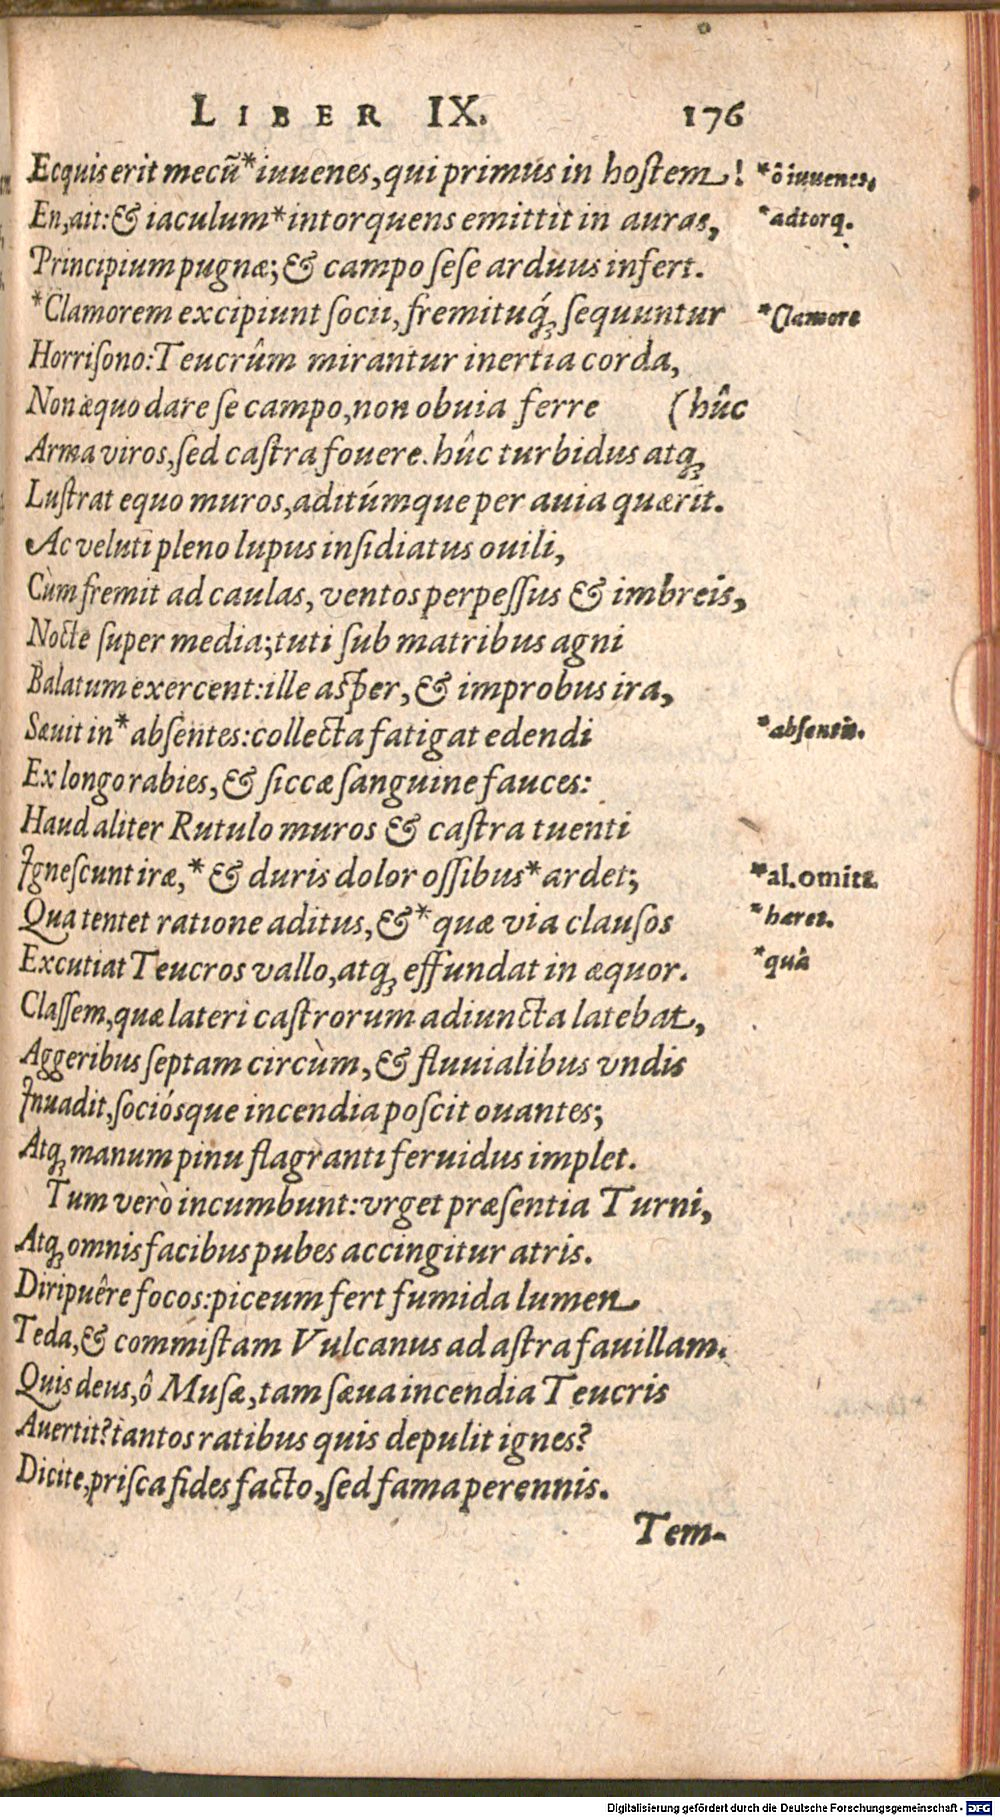 LIBER IX. 176
Ecquis erit mecũ*iuuenes, qui primus in hostem! *ô iuuenes.
En, ait: & iaculum*intorquens emittit in auras, *adtorq.
Principium pugnæ; & campo sese arduus infert.
*Clamorem excipiunt socii, fremituq́; sequuntur *Clamore
Horrisono: Teucrûm mirantur inertia corda,
Non æquo dare se campo, non obuia ferre (hûc
Arma viros, sed castra fouere. hûc turbidus atq;
Lustrat equo muros, aditúmque per auia quærit.
Ac veluti pleno lupus insidiatus ouili,
Cùm fremit ad caulas, ventos perpessus & imbreis,
Nocte super media; tuti sub matribus agni
Balatum exercent: ille asper, & improbus ira,
Sæuit in* absentes: collecta fatigat edendi *absentis.
Ex longo rabies, & siccæ sanguine fauces:
Haud aliter Rutulo muros & castra tuenti
Ignescunt iræ,* & duris dolor ossibus*ardet; *al. omitt.
Qua tentet ratione aditus, &* quæ via clausos *hæret.
Excutiat Teucros vallo, atq; effundat in æquor. *quà
Classem, quæ lateri castrorum adiuncta latebat,
Aggeribus septam circùm, & fluuialibus vndis
Inuadit, sociósque incendia poscit ouantes;
Atq; manum pinu flagranti feruidus implet.
Tum verò incumbunt: vrget præsentia Turni,
Atq; omnis facibus pubes accingitur atris.
Diripuêre focos: piceum fert fumida lumen
Teda, & commistam Vulcanus ad astra fauillam.
Quis deus, ô Musæ, tam sæua incendia Teucris
Auertit? tantos ratibus quis depulit ignes?
Dicite, prisca fides facto, sed fama perennis.
Tem-
Digitalisierung gefördert durch die Deutsche Forschungsgemeinschaft - DFG